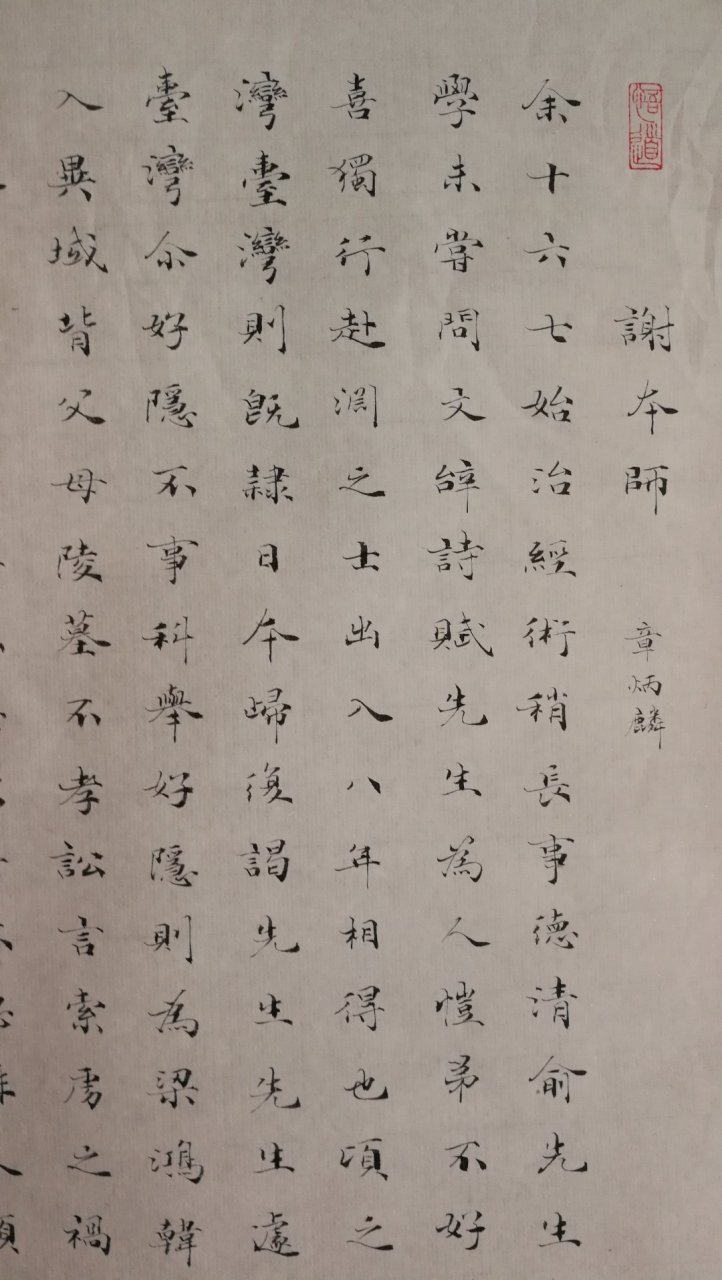 悟道
謝本師 章炳麟
余十六七始治經術稍長事德清俞先生
學未嘗問文辭詩賦先生為人愷弟不好
喜獨行赴淵之士出入八年相得也頃之
灣臺灣則既隸日本歸復謁先生先生遽
臺灣尒好隱不事科舉好隱則為梁鴻韓
入異域背父母陵墓不孝訟言索虜之禍